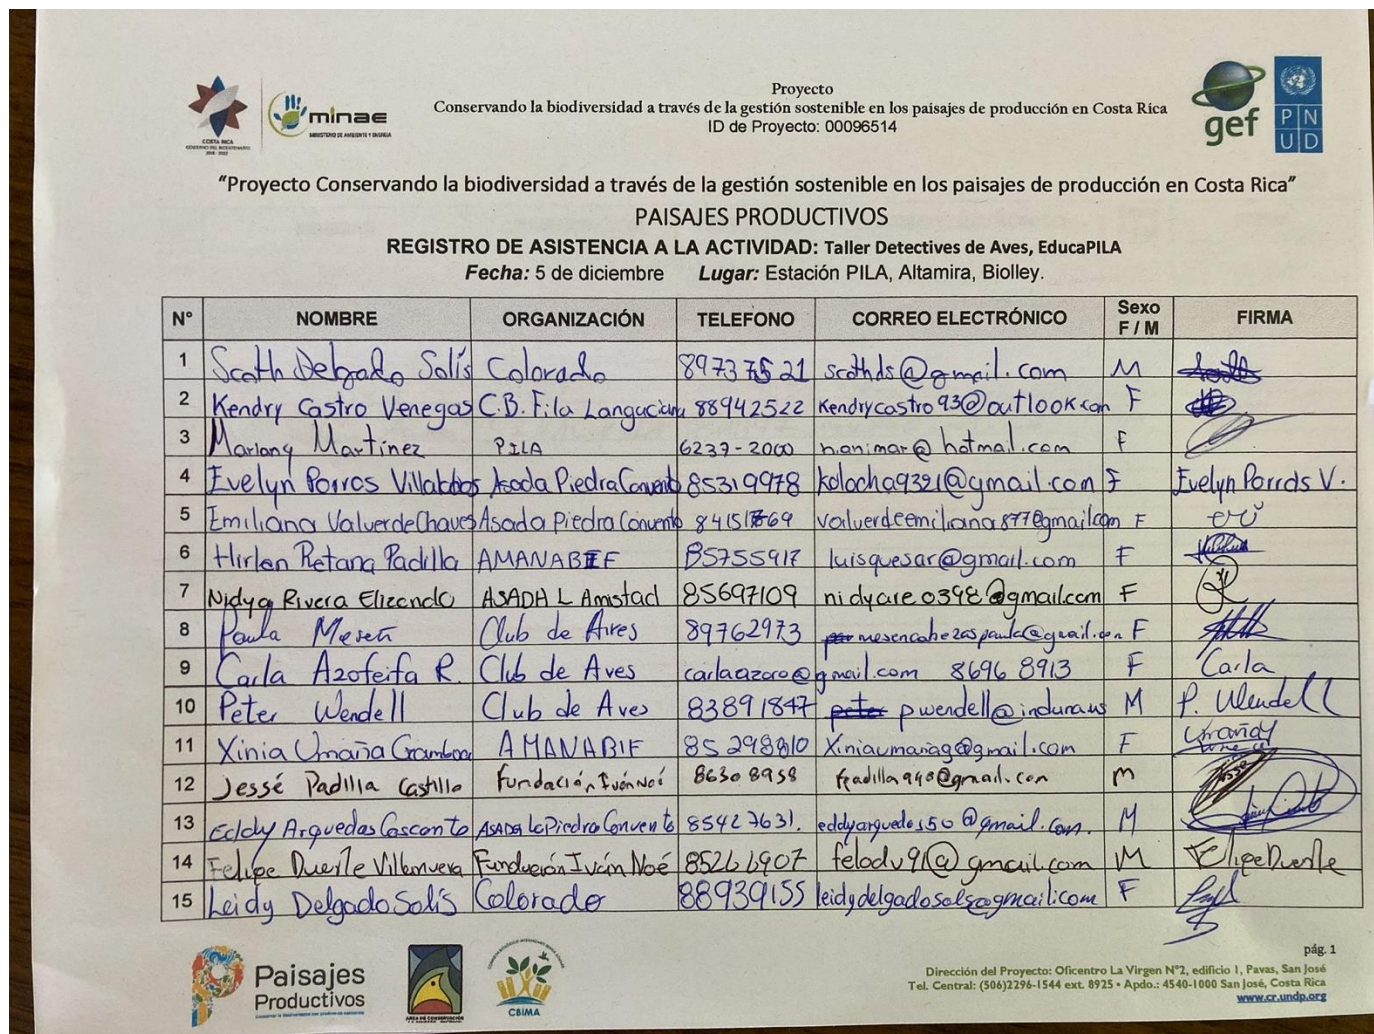 COSTA RICA
GOBIERNO DEL BICENTENARIO
2018 - 2022
minae
MINISTERIO DE AMBIENTE Y ENERGÍA
Proyecto
Conservando la biodiversidad a través de la gestión sostenible en los paisajes de producción en Costa Rica
ID de Proyecto: 00096514
gef
P N
U D
“Proyecto Conservando la biodiversidad a través de la gestión sostenible en los paisajes de producción en Costa Rica”
PAISAJES PRODUCTIVOS
REGISTRO DE ASISTENCIA A LA ACTIVIDAD: Taller Detectives de Aves, EducaPILA
Fecha: 5 de diciembre Lugar: Estación PILA, Altamira, Biolley.
N° NOMBRE ORGANIZACIÓN TELEFONO CORREO ELECTRÓNICO Sexo F / M FIRMA
1 Scoth Delgado Solís Colorado 89737521 scothds@gmail.com M
2 Kendry Castro Venegas C.B. Fila 88942522 Kendrycastro93@outlook.com F
3 Mariany Martínez PILA 6237-2000 hanimar@hotmail.com F
4 Evelyn Porras Villalobos Asada Piedra Convento 85319978 kolocha9321@gmail.com F Evelyn Porras V.
5 Emiliana Valverde Chaves Asada Piedra Convento F
6 Hirlen Retana Padilla AMANABIF 85755917 luisquesar@gmail.com F
7 Nidya Rivera Elizondo ASADA L Amistad 85697109 F
8 Paula Meseń Club de Aves 89762973 mesencabezaspaula@gmail.com F
9 Carla Azofeifa R. Club de Aves carlaazoro@gmail.com 8696 8913 F Carla
10 Peter Wendell Club de Aves 83891847 peter pwendell@indura.us M P. Wendell
11 Xinia Umaña Gamboa AMANABIF 85298810 Xiniaumanag@gmail.com F
12 Jessé Padilla Castillo Fundación Iván Noé 86308958 M
13 Eddy Arguedas Cascante ASADA La Piedra Convento 85427631. eddyarguedas50@gmail.com. M
14 Felipe Duerle Villanueva Fundación Iván Noé 85266907 felodv91@gmail.com M Felipe Duerle
15 Leidy Delgado Solís Colorado 88939155 F
pág. 1
Paisajes
Productivos
ÁREA DE CONSERVACIÓN
CBIMA
Dirección del Proyecto: Oficentro La Virgen N°2, edificio 1, Pavas, San José
Tel. Central: (506)2296-1544 ext. 8925 • Apdo.: 4540-1000 San José, Costa Rica
www.cr.undp.org